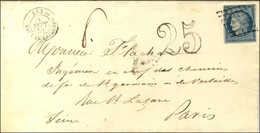 25
Monsieur Flachat
Ingénieur en chef des chemins
de fer de St germain & de Versailles
rue St Lazare
Paris
Seine